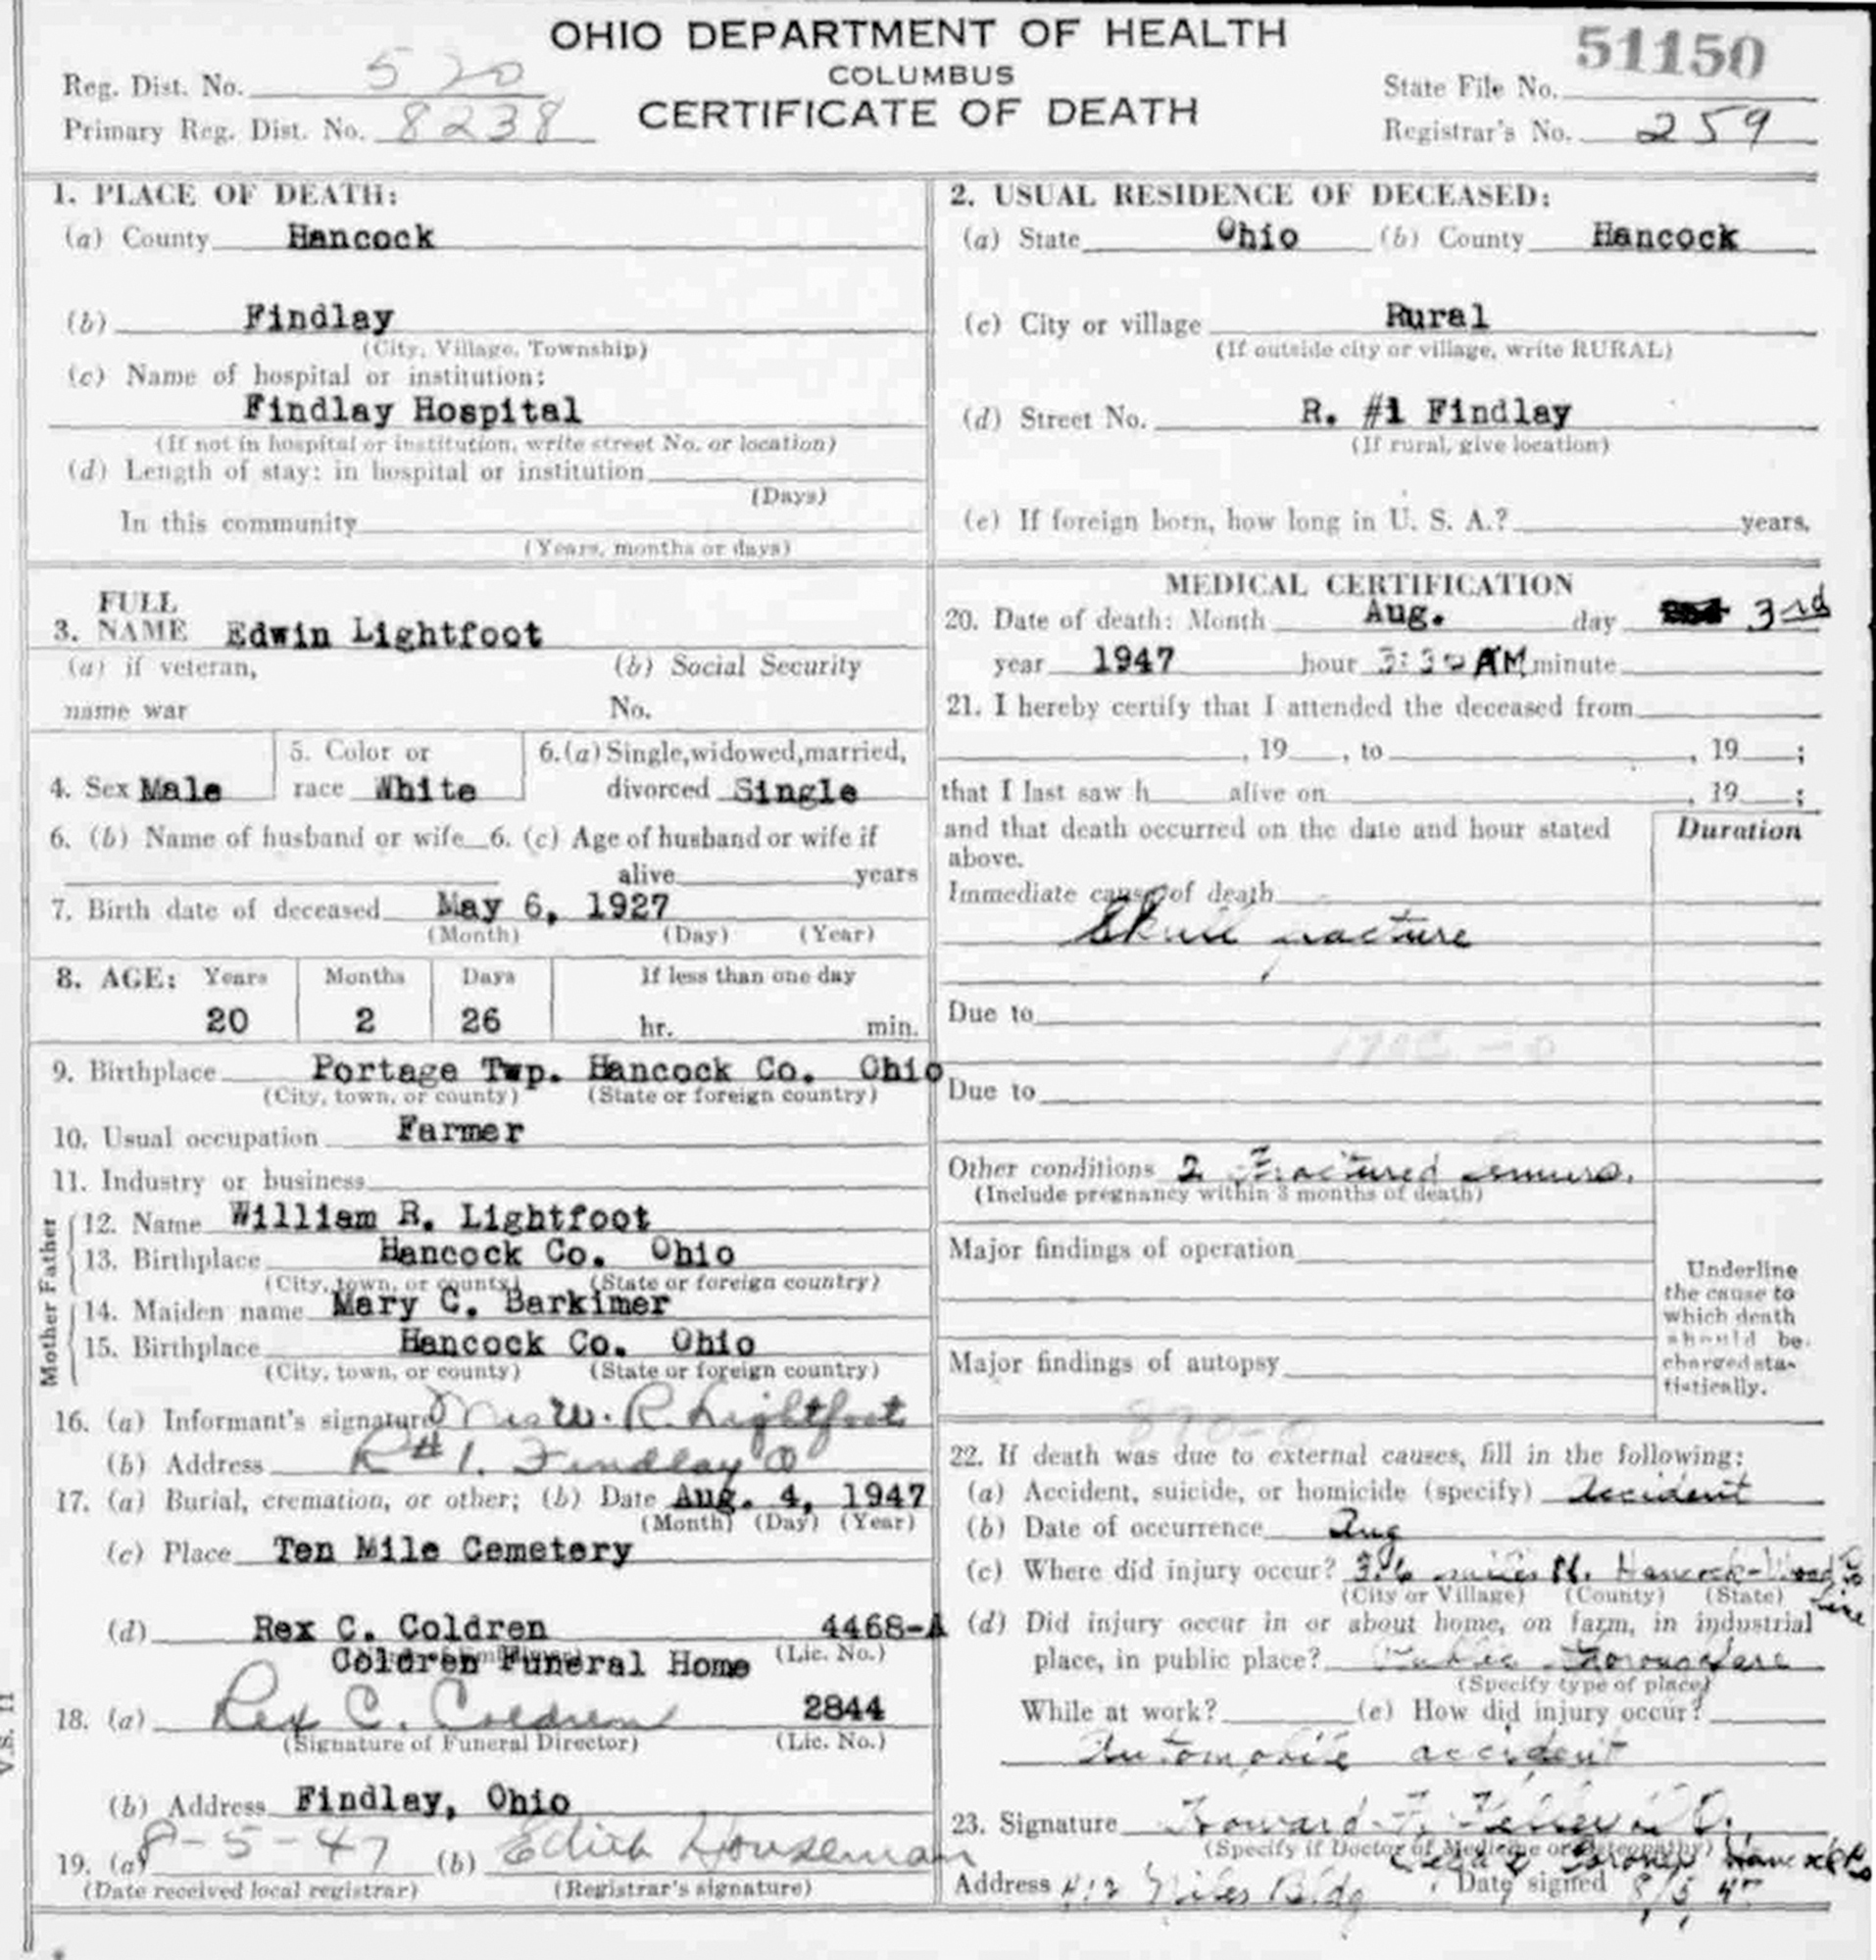 OHIO DEPARTMENT OF HEALTH
COLUMBUS
CERTIFICATE OF DEATH
Reg. Dist. No. 520
Primary Reg. Dist. No. 8238
51150
State File No.
Registrar's No. 259
1. PLACE OF DEATH:
(a) County Hancock
(b) Findlay
(City, Village, Township)
(c) Name of hospital or institution:
Findlay Hospital
(If not in hospital or institution, write street No. or location)
(d) Length of stay: in hospital or institution
(Days)
In this community
(Years, months or days)
2. USUAL RESIDENCE OF DECEASED:
(a) State Ohio (b) County Hancock
(c) City or village Rural
(If outside city or village, write RURAL)
(d) Street No. R. #1 Findlay
(If rural, give location)
(e) If foreign born, how long in U. S. A.? years.
3. FULL NAME Edwin Lightfoot
(a) if veteran, name war
(b) Social Security No.
4. Sex Male
5. Color or race White
6.(a) Single, widowed, married, divorced Single
6. (b) Name of husband or wife
6. (c) Age of husband or wife if alive years
7. Birth date of deceased May 6, 1927
(Month) (Day) (Year)
8. AGE: Years Months Days If less than one day
20 2 26 hr. min.
9. Birthplace Portage Twp. Hancock Co. Ohio
(City, town, or county) (State or foreign country)
10. Usual occupation Farmer
11. Industry or business
Father
12. Name William R. Lightfoot
13. Birthplace Hancock Co. Ohio
(City, town, or county) (State or foreign country)
Mother
14. Maiden name Mary C. Barkimer
15. Birthplace Hancock Co. Ohio
(City, town, or county) (State or foreign country)
16. (a) Informant's signature Mrs W. R. Lightfoot
(b) Address R#1. Findlay O
17. (a) Burial, cremation, or other; (b) Date Aug. 4, 1947
(Month) (Day) (Year)
(c) Place Ten Mile Cemetery
(d) Rex C. Coldren 4468-A
(Lic. No.)
Coldren Funeral Home
18. (a) Rex C. Coldren 2844
(Signature of Funeral Director) (Lic. No.)
(b) Address Findlay, Ohio
19. (a) 8-5-47 (b) Edith Houseman
(Date received local registrar) (Registrar's signature)
V.S. 11
MEDICAL CERTIFICATION
20. Date of death: Month Aug. day 3rd
year 1947 hour 3:30 AM minute
21. I hereby certify that I attended the deceased from
, 19 , to , 19 ;
that I last saw h alive on , 19 ;
and that death occurred on the date and hour stated above.
Duration
Immediate cause of death
Skull fracture
Due to
Due to
Other conditions 2 Fractured femurs.
(Include pregnancy within 3 months of death)
Major findings of operation
Major findings of autopsy
Underline
the cause to
which death
should be
charged sta-
tistically.
890-0
22. If death was due to external causes, fill in the following:
(a) Accident, suicide, or homicide (specify) Accident
(b) Date of occurrence Aug
(c) Where did injury occur? 3.6 miles N. Hancock-Wood Co line
(City or Village) (County) (State)
(d) Did injury occur in or about home, on farm, in industrial
place, in public place? Public Thoroughfare
(Specify type of place)
While at work? (e) How did injury occur?
Automobile accident
23. Signature Howard
(Specify if Doctor of Medicine or Osteopathy)
Coroner Hancock Co
Address 412 Niles Bldg Date signed 8/5/47